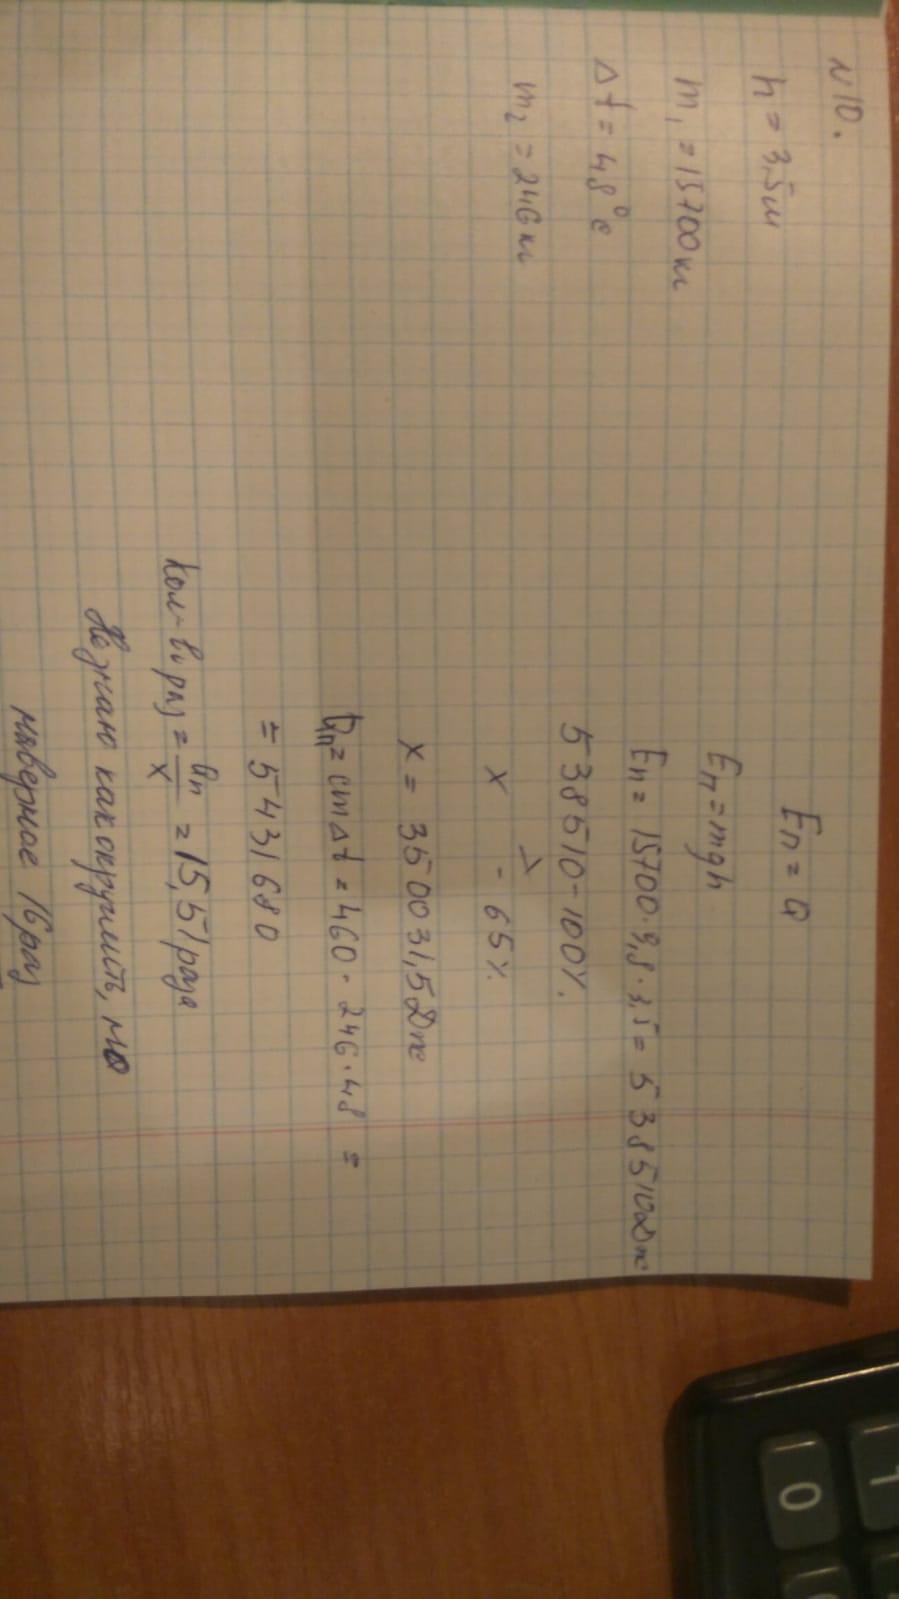 N10.
h = 3,5м
m₁ = 15700кг
Δt = 48°с
m₂ = 246кг
Eп = Q
Eп = mgh
Eп = 15700·9,8·3,5 = 538510Дж
538510-100%.
x - 65%.
x = 350031,5Дж
Qп = cmΔt = 460·246·48 =
= 5431680
Кол-во раз = Qп/x = 15,51раза
Не знаю как округлить, но
наверное 16раз
1
0